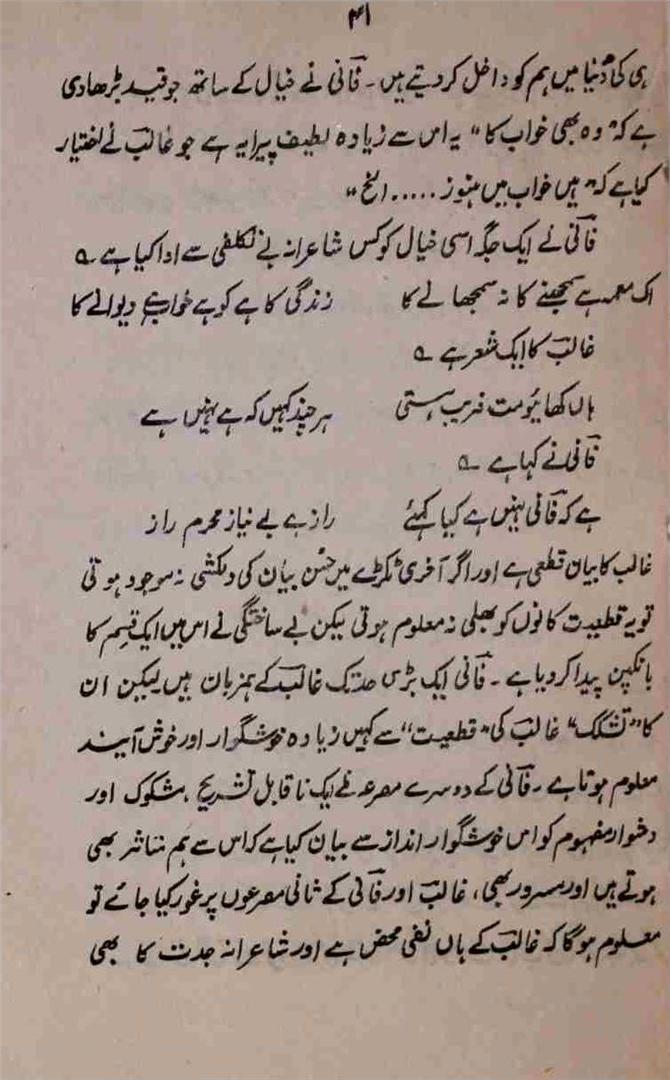 ۴۱
ہی کی دُنیا میں ہم کو داخل کردیتے ہیں۔ فانی نے خیال کے ساتھ جو قید بڑھادی
ہے کہ "وہ بھی خواب کا" یہ اس سے زیادہ لطیف پیرایہ ہے جو غالب نے اختیار
کیا ہے کہ "ہیں خواب میں ہنوز ..... الخ"
فانی نے ایک جگہ اسی خیال کو کس شاعرانہ بے تکلفی سے ادا کیا ہے ؎
اک معمہ ہے سمجھنے کا نہ سمجھانے کا زندگی کا ہے کو ہے خواب ہے دیوانے کا
غالب کا ایک شعر ہے ؎
ہاں کھائیو مت فریب ہستی ہر چند کہیں کہ ہے نہیں ہے
فانی نے کہا ہے ؎
ہے کہ فانی نہیں ہے کیا کہئے راز ہے بے نیاز محرم راز
غالب کا بیان قطعی ہے اور اگر آخری ٹکڑے میں حسن بیان کی دلکشی نہ موجود ہوتی
تو یہ قطعیت کانوں کو بھلی نہ معلوم ہوتی لیکن بے ساختگی نے اس میں ایک قسم کا
بانکپن پیدا کردیا ہے۔ فانی ایک بڑی حد تک غالب کے ہمزبان ہیں لیکن ان
کا "تشکک" غالب کی "قطعیت" سے کہیں زیادہ خوشگوار اور خوش آیند
معلوم ہوتا ہے۔ فانی کے دوسرے مصرعہ نے ایک ناقابل تشریح، مشکوک اور
دشوار مفہوم کو اس خوشگوار انداز سے بیان کیا ہے کہ اس سے ہم متاثر بھی
ہوتے ہیں اور مسرور بھی، غالب اور فانی کے ثانی مصرعوں پر غور کیا جائے تو
معلوم ہوگا کہ غالب کے ہاں نفی محض ہے اور شاعرانہ جدت کا بھی